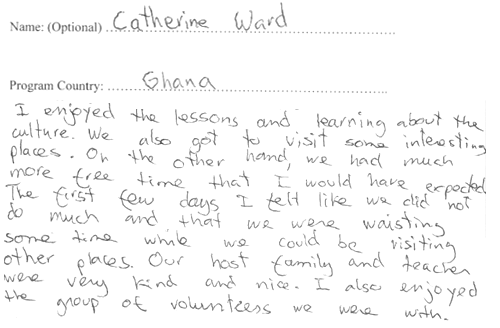 Name: (Optional) Catherine Ward
Program Country: Ghana
I enjoyed the lessons and learning about the
culture. We also got to visit some interesting
places. On the other hand, we had much
more free time that I would have expected
The first few days I felt like we did not
do much and that we were waisting
some time while we could be visiting
other places. Our host family and teacher
were very kind and nice. I also enjoyed
the group of volunteess we were with.